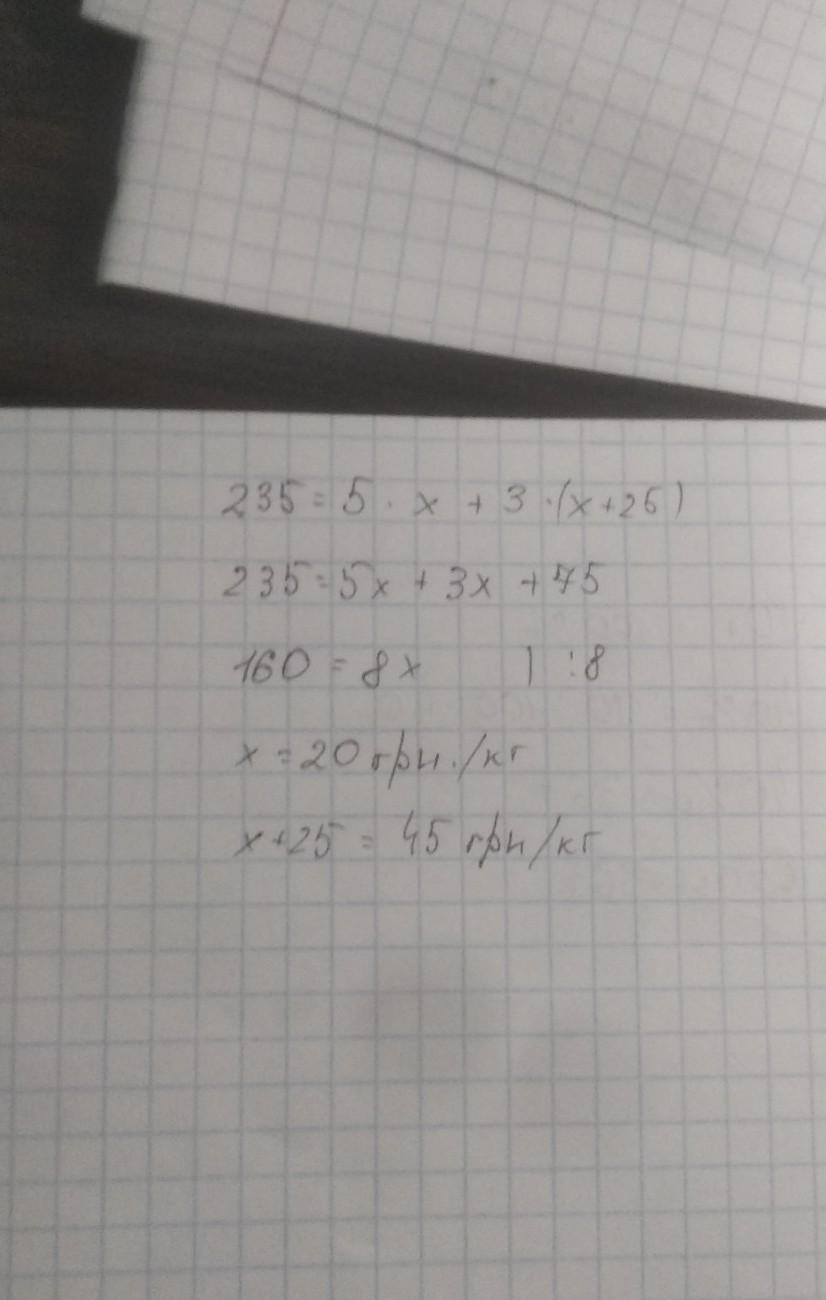 235 = 5 · x + 3 · (x+25)
235 = 5x + 3x + 75
160 = 8x | :8
x = 20 грн./кг
x+25 = 45 грн/кг